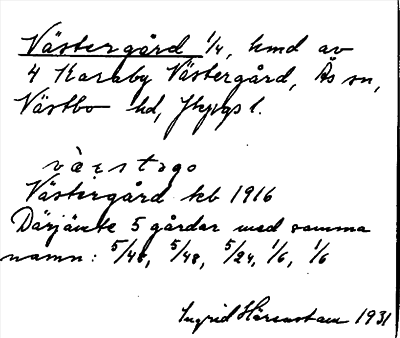 Västergård 1/4, hmd av
4 Karaby Västergård, Ås sn,
Västbo hd, Jkpgs l.
Västergård kb 1916
Därjämte 5 gårdar med samma
namn: 5/48, 5/48, 5/24, 1/6, 1/6
Ingrid Härenstam 1931